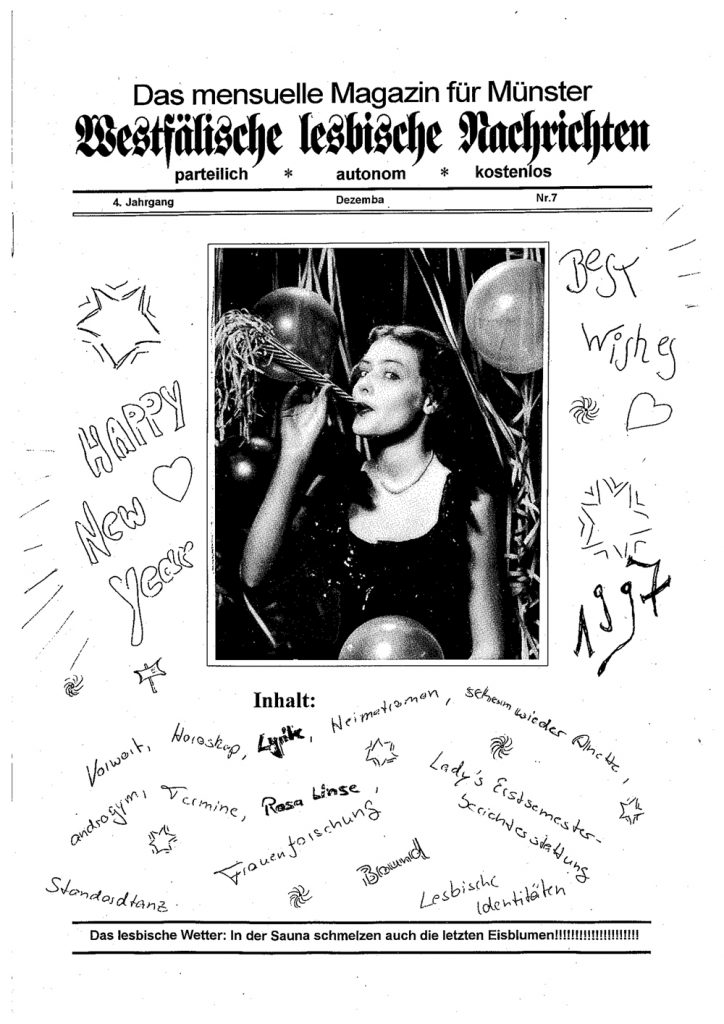 Das mensuelle Magazin für Münster
Westfälische lesbische Nachrichten
parteilich * autonom * kostenlos
4. Jahrgang Dezemba Nr.7
BEST
Wishes
HAPPY
New
Year
1997
Inhalt:
Vorwort, Horoskop, Lyrik, Heimatroman, schon wieder Anette,
androgym, Termine, Rosa Linse,
Lady's Erstsemester-
berichterstattung
Frauenforschung
Bound
Standardtanz
Lesbische
Identitäten
Das lesbische Wetter: In der Sauna schmelzen auch die letzten Eisblumen!!!!!!!!!!!!!!!!!!!!!